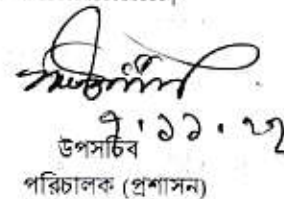 ৭.১১.২২
উপসচিব
পরিচালক (প্রশাসন)